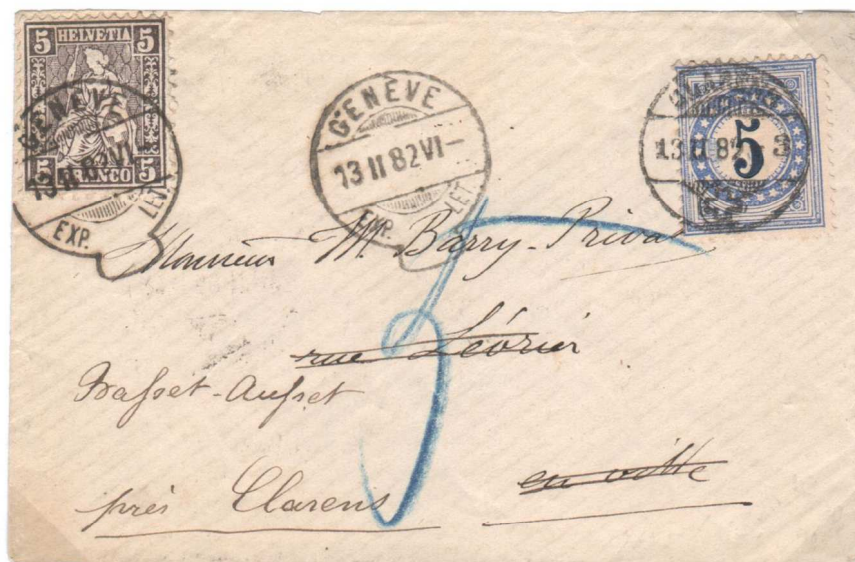 5 HELVETIA 5
5 FRANCO 5
GENÈVE
13 II 82 VI
EXP. LET.
GENÈVE
13 II 82 VI-
EXP. LET.
5
13 II 82 3
Monsieur M. Barry-Privat
rue Lévrier
Basset-Aufset
en ville
près Clarens
5